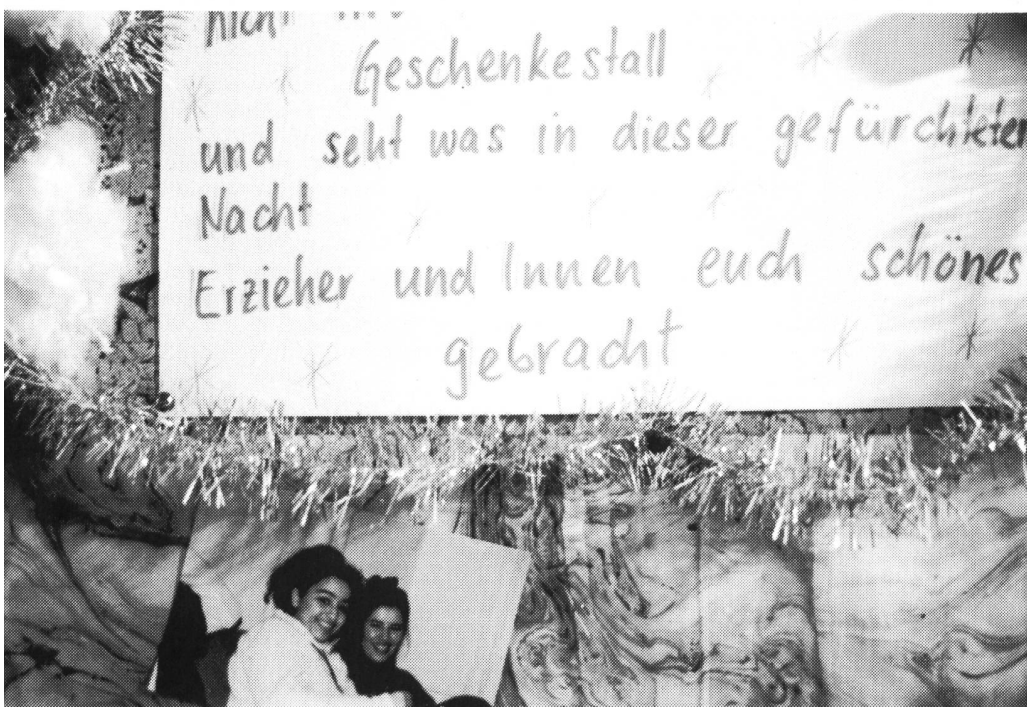 nicht
Geschenkestall
und seht was in dieser gefürchteten
Nacht
Erzieher und Innen euch schönes
gebracht